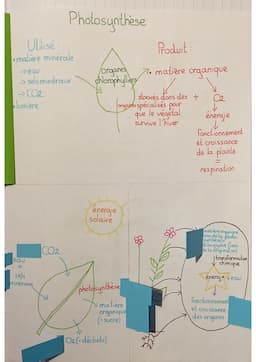 Photosynthèse
Utilisé
• matière minérale
→ eau
→ sels minéraux
→ CO2
• lumière
organes
chlorophylliens
Produit :
• matière organique
stockés dans des + O2
organes spécialisés pour
que le végétal
survive l'hiver
énergie
fonctionnement
et croissance
de la plante
=
respiration
énergie
solaire
CO2
eau
+
sels
minéraux
photosynthèse
matière
organique
(= sucre)
O2 (= déchets)
transformation
chimique
énergie + eau
Fonctionnement
et croissance
des organes